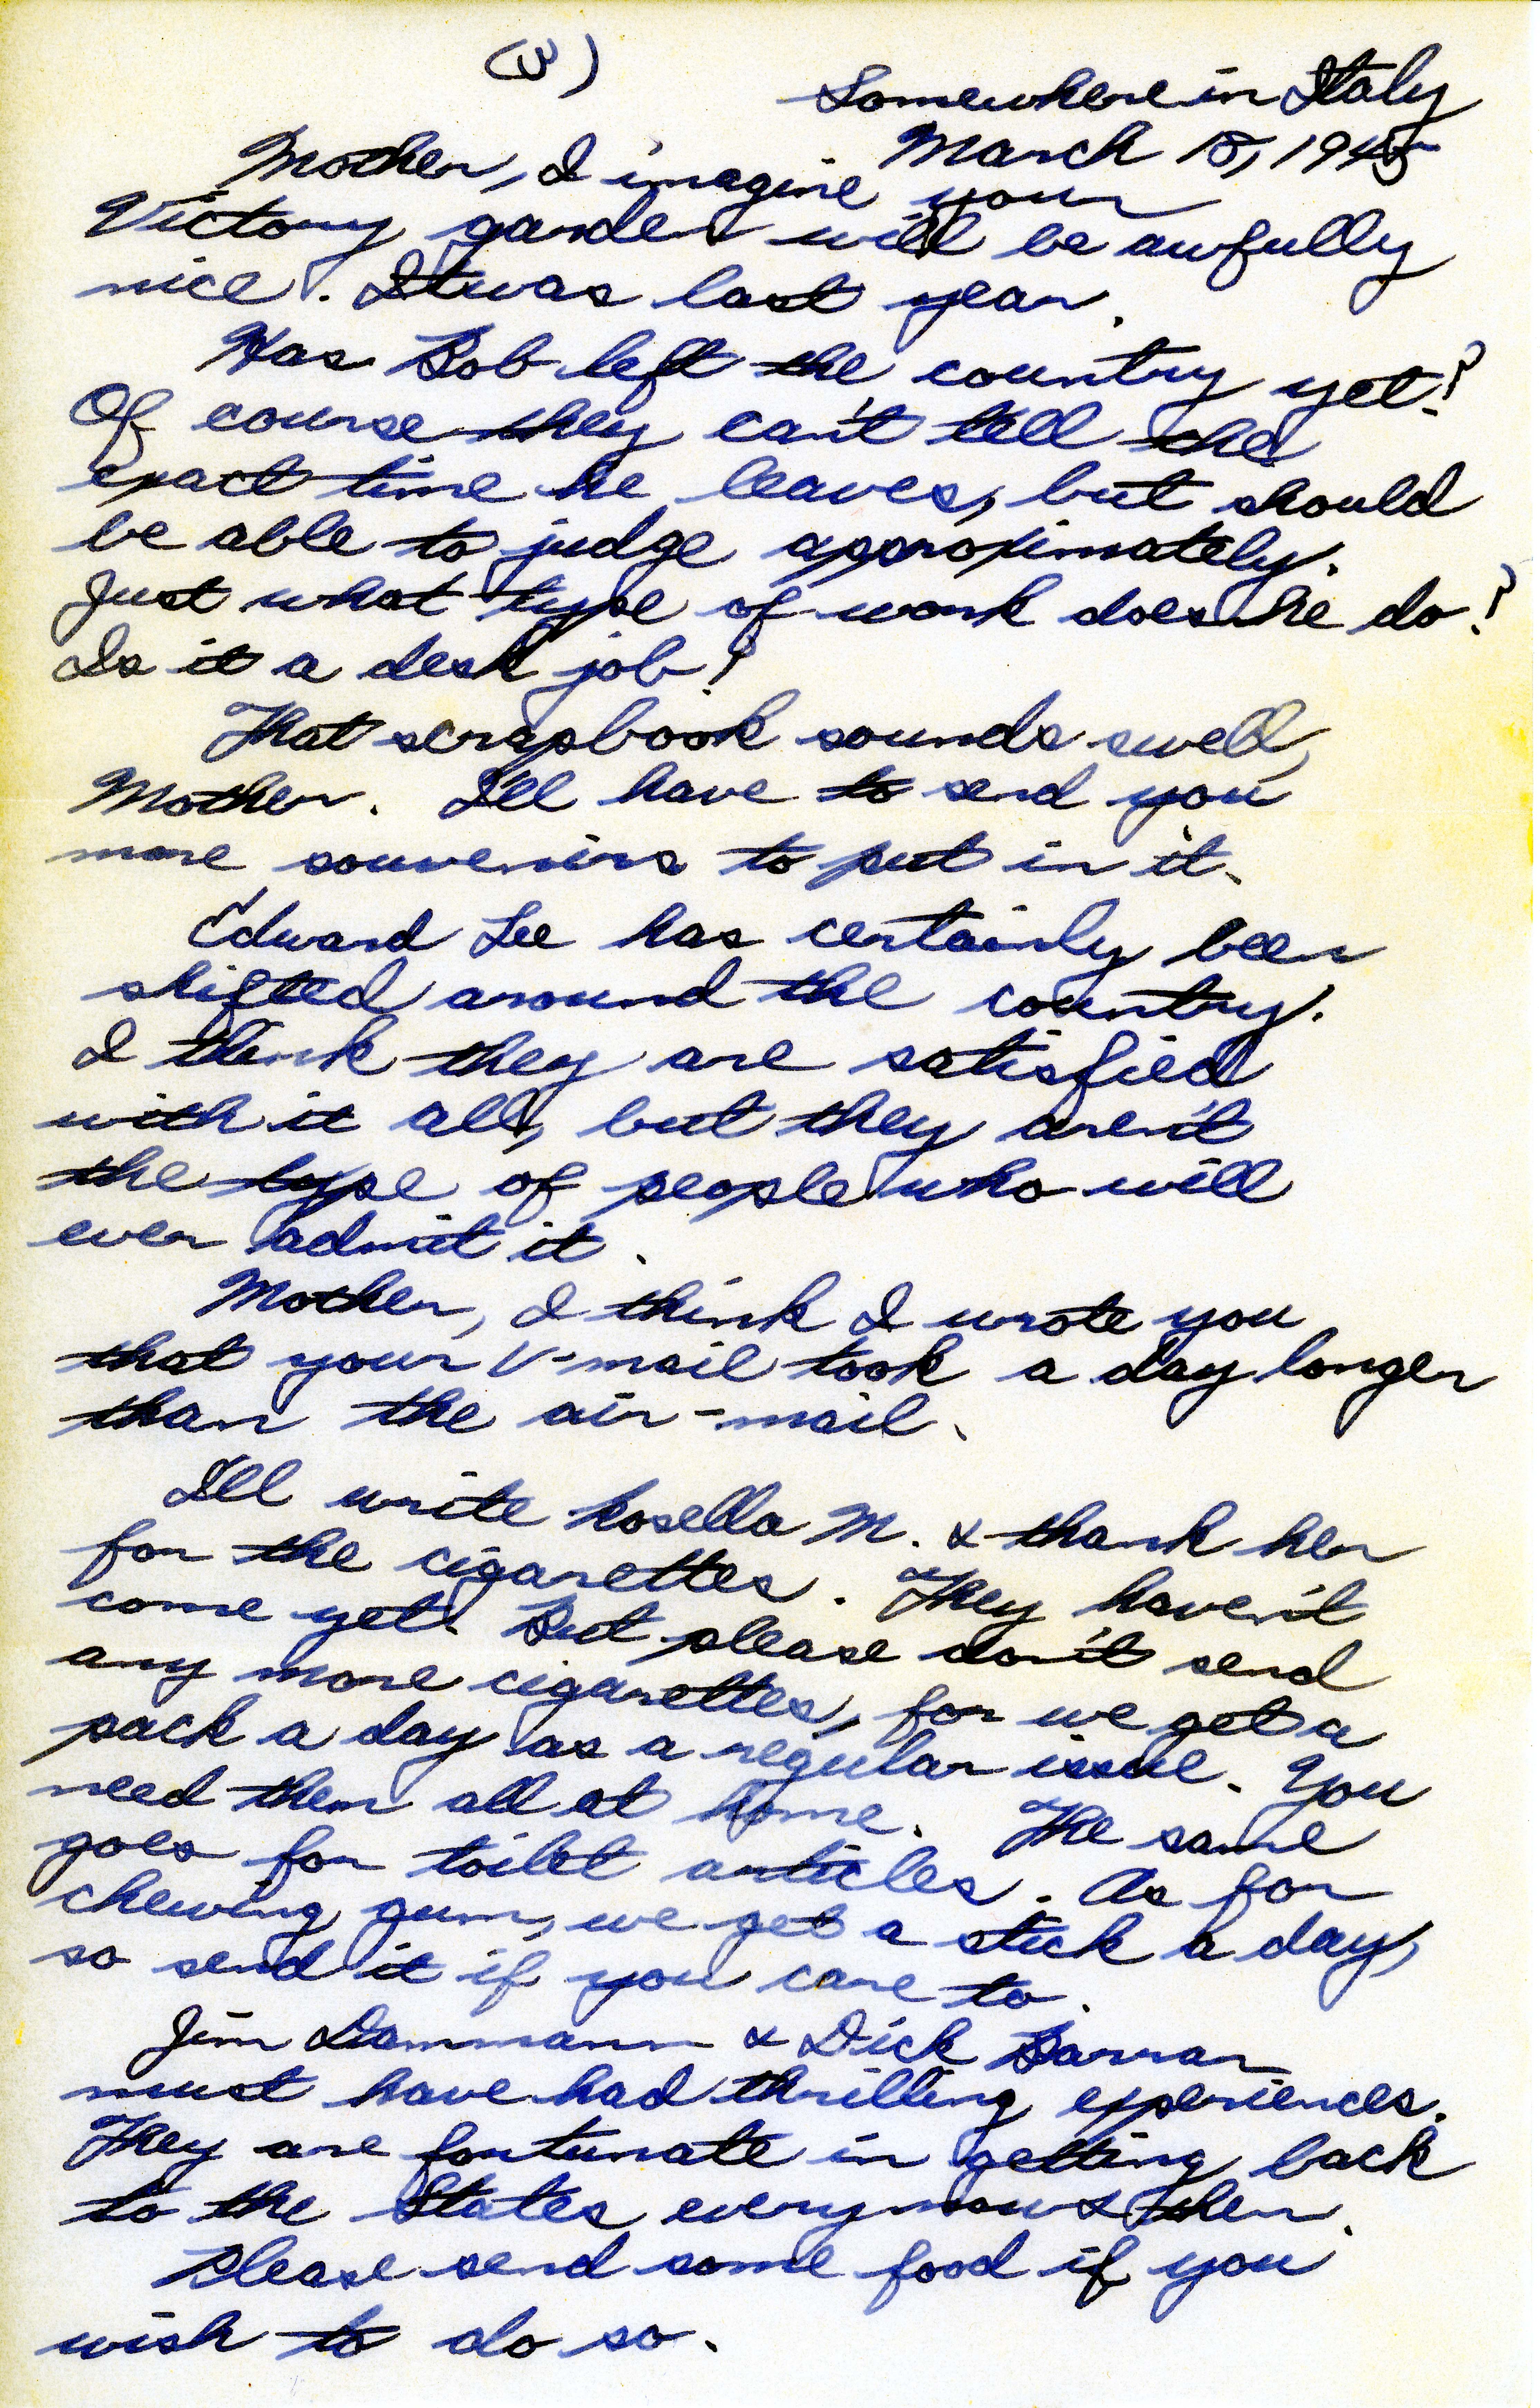 (3)
Somewhere in Italy
March 15, 1945
Mother, I imagine your
Victory garden will be awfully
nice. It was last year.
Has Bob left the country yet?
Of course they can't tell the
exact time he leaves, but should
be able to judge approximately.
Just what type of work does he do?
Is it a desk job?
That scrapbook sounds swell,
Mother. I'll have to send you
more souvenirs to put in it.
Edward Lee has certainly been
shifted around the country.
I think they are satisfied
with it all, but they aren't
the type of people who will
ever admit it.
Mother, I think I wrote you
that your V-mail took a day longer
than the air-mail.
I'll write Rosella M. & thank her
for the cigarettes. They haven't
come yet. But please don't send
any more cigarettes, for we get a
pack a day as a regular issue. You
need them all at home. The same
goes for toilet articles. As for
chewing gum, we get a stick a day,
so send it if you care to.
Jim Dammann & Dick Barran
must have had thrilling experiences.
They are fortunate in getting back
to the States every now & then.
Please send some food if you
wish to do so.